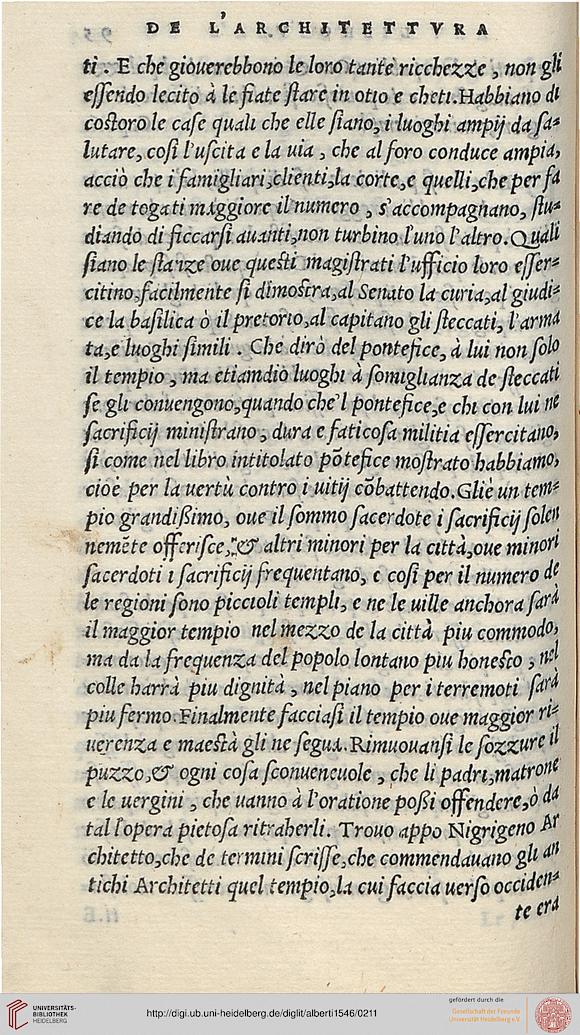 DE L'ARCHITETTVRA
ti. E che giouerebbono le loro tante ricchezze, non gli
eſſendo lecito à le fiate ſtare in otio e cheti. Habbiano di
coſtoro le caſe quali che elle ſiano, i luoghi ampij da ſa=
lutare, coſi l'uſcita e la uia, che al foro conduce ampia,
acciò che i famigliari, clienti, la corte, e quelli, che per fa
re de togati maggiore il numero, s'accompagnano, ſtu=
diando di ficcarſi auanti, non turbino l'uno l'altro. Quali
ſiano le ſtanze oue queſti magiſtrati l'ufficio loro eſſer=
citino, facilmente ſi dimoſtra, al Senato la curia, al giudi=
ce la baſilica ò il pretorio, al capitano gli ſteccati, l'arma
ta, e luoghi ſimili. Che dirò del pontefice, à lui non ſolo
il tempio, ma etiamdio luoghi à ſomiglianza de ſteccati
ſe gli conuengono, quando che'l pontefice, e chi con lui ne
ſacrificij miniſtrano, dura e faticoſa militia eſſercitano,
ſi come nel libro intitolato põtefice moſtrato habbiamo,
cioè per la uertù contro i uitij cõbattendo. Gliè un tem=
pio grandißimo, oue il ſommo ſacerdote i ſacrificij ſolen
nemẽte offeriſce, & altri minori per la città, oue minori
ſacerdoti i ſacrificij frequentano, e coſi per il numero de
le regioni ſono piccioli templi, e ne le uille anchora ſarà
il maggior tempio nel mezzo de la città piu commodo,
ma da la frequenza del popolo lontano piu honeſto, nel
colle harrà piu dignità, nel piano per i terremoti ſarà
piu fermo. Finalmente facciaſi il tempio oue maggior ri=
uerenza e maeſtà gli ne ſegua. Rimuouanſi le ſozzure il
puzzo, & ogni coſa ſconueneuole, che li padri, matrone
e le uergini, che uanno à l'oratione poßi offendere, ò da
tal l'opera pietoſa ritraherli. Trouo appo Nigrigeno Ar
chitetto, che de termini ſcriſſe, che commendauano gli an
tichi Architetti quel tempio, la cui faccia uerſo occiden=
te era
UNIVERSITÄTS-
BIBLIOTHEK
HEIDELBERG
http://digi.ub.uni-heidelberg.de/diglit/alberti1546/0211
gefördert durch die
Gesellschaft der Freunde
Universität Heidelberg e.V.